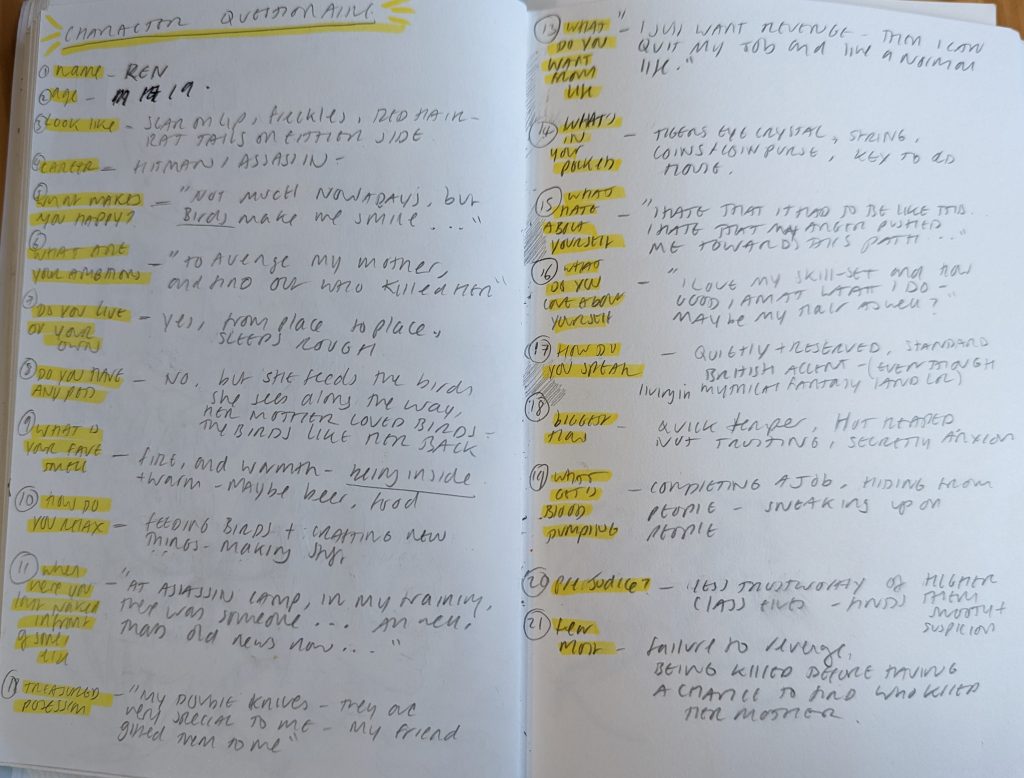 CHARACTER QUESTIONAIRE
① name - REN
② age - 19.
③ LOOK LIKE - SCAR ON LIP, freckles, RED HAIR -
RAT TAILS ON EITHER SIDE
④ CAREER - HITMAN / ASSASSIN -
WHAT MAKES - "NOT MUCH NOWADAYS, but
YOU HAPPY? Birds make me smile ... "
⑥
WHAT ARE - "TO AVENGE MY MOTHER,
YOUR AMBITIONS and FIND OUT WHO KILLED HER"
⑦ DO YOU LIVE - yes, from place to place,
ON YOUR SLEEPS ROUGH
OWN
⑧ DO YOU HAVE - NO, but SHE feeds the birds
ANY PETS she sees along the way,
HER MOTHER LOVED BIRDS -
THE BIRDS LIKE HER BACK
⑨ WHAT IS
YOUR FAVE
SMELL - fire, and warmth - being inside
+ warm - maybe beer, food
⑩ HOW DO
YOU RELAX - feeding BIRDS + CRAFTING NEW
THINGS - making stuff.
⑪ when
were you - "AT ASSASSIN CAMP, in my training,
last naked there was someone ... Ah well,
infront thats old news now ... "
of some
else
TREASURED - "MY DOUBLE KNIVES - they are
POSESSION very special to me - my friend
gifted them to me"
⑬ WHAT - "I JUST WANT REVENGE - THEN I CAN
DO YOU QUIT MY JOB and live a NORMAL
WANT LIFE."
FROM
LIFE
⑭ WHATS
IN - TIGERS EYE CRYSTAL, STRING,
YOUR COINS + COIN PURSE, KEY TO OLD
POCKETS HOUSE.
⑮ WHAT
HATE - "I HATE THAT IT HAD TO BE LIKE THIS.
ABOUT I HATE THAT MY ANGER PUSHED
YOURSELF ME TOWARDS THIS PATH ... "
⑯ WHAT
DO YOU - "I LOVE MY SKILL-SET and how
LOVE ABOUT GOOD I AM AT WHAT I DO -
YOURSELF MAYBE MY HAIR AS WELL?"
⑰ HOW DO - QUIETLY + RESERVED, STANDARD
YOU SPEAK BRITISH ACCENT - (EVEN THOUGH
living in mythical fantasy land lol)
⑱
BIGGEST - QUICK temper, HOT HEADED
flaw NOT TRUSTING, SECRETLY ANXIOUS
⑲ WHAT
GETS - COMPLETING A JOB, HIDING FROM
BLOOD PEOPLE - SNEAKING UP ON
PUMPING PEOPLE
⑳ prejudice? - LESS TRUSTWORTHY of HIGHER
CLASS ELVES - FINDS THEM
SNOOTY +
SUSPICION
㉑ fear
most - failure to revenge,
BEING KILLED BEFORE HAVING
A CHANCE TO FIND WHO KILLED
HER MOTHER.